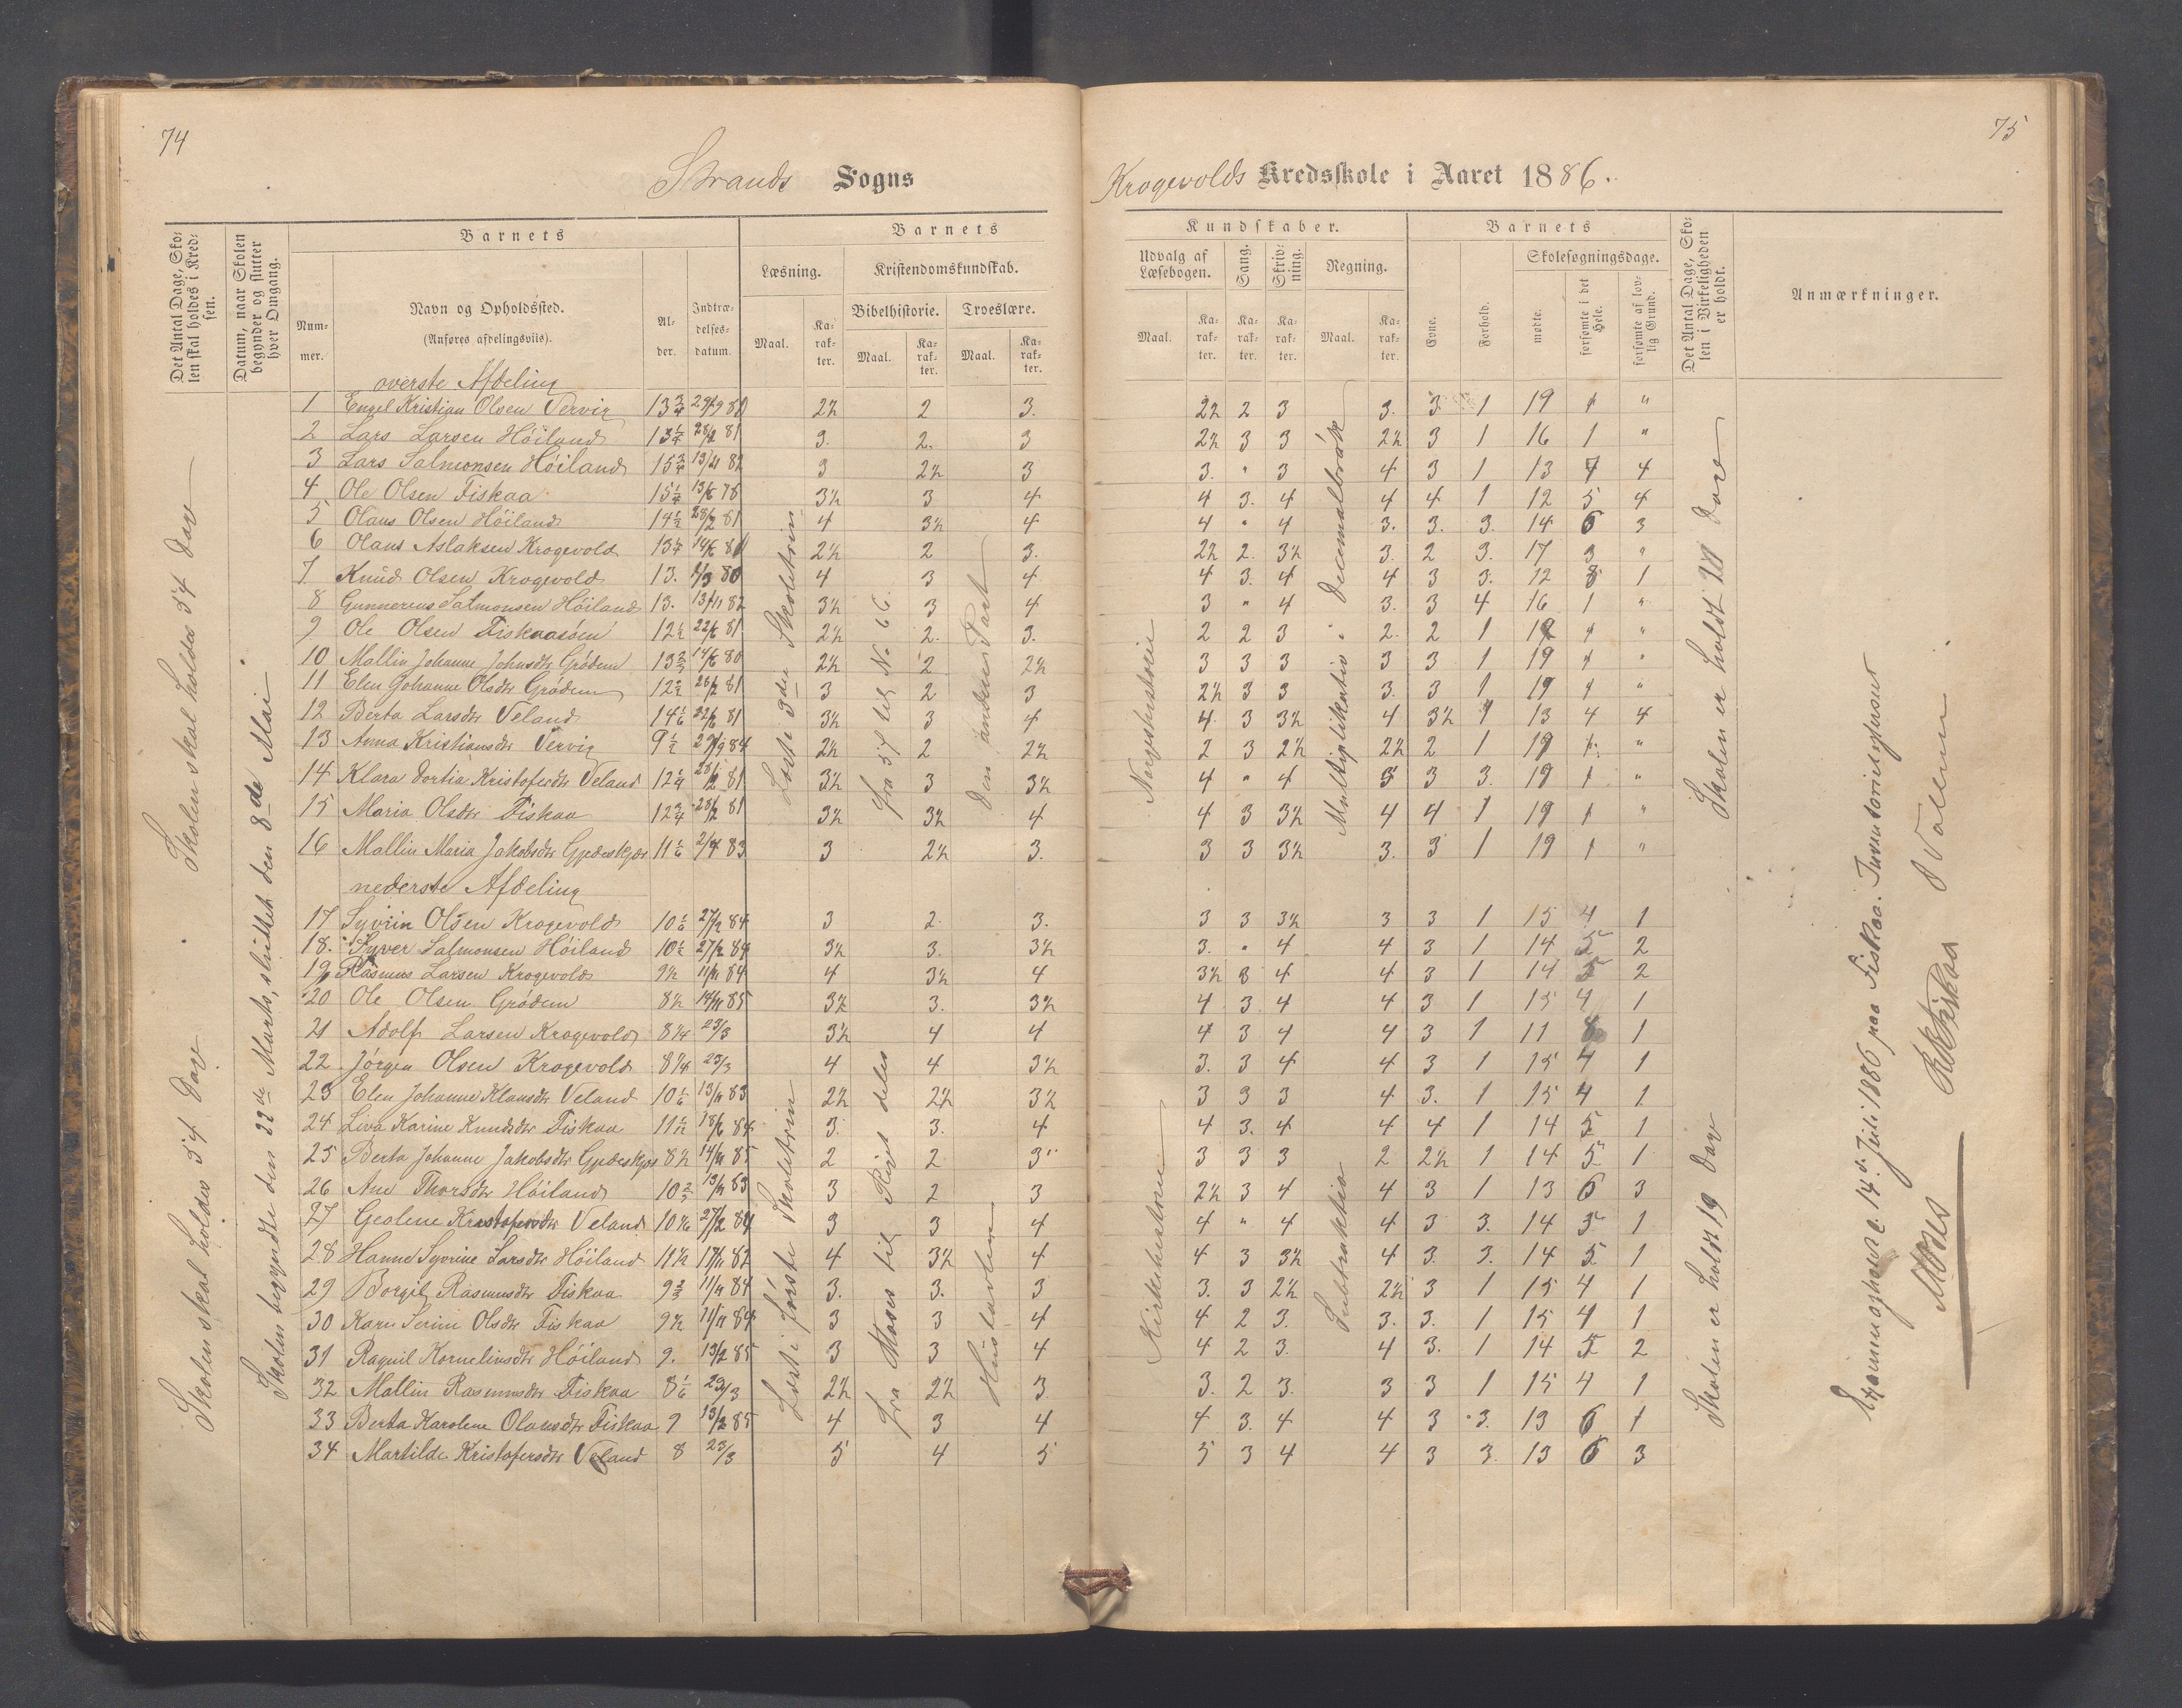 74
Strands Sogns
Det Antal Dage, Skolen skal holdes i Kredsen.
Datum, naar Skolen begynder og slutter hver Omgang.
Barnets
Barnets
Nummer.
Navn og Opholdssted.
(Anføres afdelingsviis).
Alder.
Indtrædelsesdatum.
Læsning.
Kristendomskundskab.
Bibelhistorie. Troeslære.
Maal. Karakter. Maal. Karakter. Maal. Karakter.
Skolen skal holdes 54 Dage
Skolen skal holdes 54 Dage
Skolen begyndte den 22de Marts, sluttet den 8de Mai
overste Afdeling
1 Engel Kristian Olsen Tervig 13 3/4 29/9 80 2½ 2 3.
2 Lars Larsen Höiland 13 1/4 28/2 81 3. 2. 3
3 Lars Salmonsen Höiland 15 3/4 13/11 82 3 2½ 3
4 Ole Olsen Fiskaa 15 1/4 13/6 78 3½ 3 4
5 Olaus Olsen Höiland 14 1/2 28/2 81 4 3½ 4
6 Olaus Aslaksen Krogevold 13 1/4 14/6 80 2½ 2 3.
7 Knud Olsen Krogevold 13. 1/3 80 4 3 4
8 Gunnerius Salmonsen Höiland 13. 13/11 82 3½ 3 4
9 Ole Olsen Fiskaasöen 12 1/2 22/6 81 2½ 2. 3.
10 Mallin Johanne Johnsdtr Grödem 13 2/3 14/6 80 2½ 2 2½
11 Elen Johanne Olsdtr Grödem 12 1/2 28/2 81 3 2 3
12 Berta Larsdtr Veland 14 1/6 22/6 81 3½ 3 4
13 Anna Kristiansdtr Tervig 9 1/2 29/9 84 2½ 2 2½
14 Klara Dortia Kristofersdtr Veland 12 1/4 28/2 81 3½ 3 3½
15 Maria Olsdtr Fiskaa 12 3/4 28/2 81 3½ 3½ 4
16 Mallin Maria Jakobsdtr Gjedeskjær 11 1/6 2/4 83 3 2½ 3.
Læste 3die Skoletrin
fra 54 til No 6.
Den anden Part
nederste Afdeling
17 Syvrin Olsen Krogevold 10 1/6 27/2 84 3 2. 3.
18. Syver Salmonsen Höiland 10 1/2 27/2 84 3½ 3. 3½
19 Rasmus Larsen Krogevold 9½ 11/11 84 4 3½ 4
20 Ole Olsen Grödem 8½ 14/11 85 3½ 3. 3½
21 Adolf Larsen Krogevold 8¼ 23/3 3½ 4 4
22 Jörgen Olsen Krogevold 8¼ 23/3 4 4 3½
23 Elen Johanne Klausdtr Veland 10 1/6 13/11 83 2½ 2½ 3½
24 Liva Karine Knudsdtr Fiskaa 11 18/6 84 3. 3. 4
25 Berta Johanne Jakobsdtr Gjedeskjær 8½ 14/11 85 2 2 3
26 Ane Thorsdtr Höiland 10 2/3 13/11 83 3 2 3
27 Geolene Kristofersdtr Veland 10 1/6 27/2 84 3 3 4
28 Hanne Syvrine Larsdtr Höiland 11½ 17/11 82 4 3½ 4
29 Borgil Rasmusdtr Fiskaa 9 2/3 11/11 84 3. 3. 3
30 Karn Serine Olsdtr Fiskaa 9½ 11/11 84 3 3 4
31 Ragnil Kornelinsdtr Höiland 9. 13/2 85 3 3 4
32 Mallin Rasmusdtr Fiskaa 8 1/6 23/3 2½ 2½ 3
33 Berta Karolene Olausdtr Fiskaa 9 13/2 85 4 3 4
34 Martilde Kristofersdtr Veland 8 23/3 5 4 5
Læste förste Skoletrin
fra Moses til Riget deles
Hustavlen
75
Krogevolds Kredsskole i Aaret 1886.
Kundskaber.
Barnets
Udvalg af Læsebogen.
Sang.
Skrivning.
Regning.
Maal. Karakter. Karakter. Karakter. Maal. Karakter.
Evne.
Forhold.
Skolesøgningsdage.
mødte.
forsømte i det Hele.
forsømte af lovlig Grund.
Det Antal Dage, Skolen i Virkeligheden er holdt.
Anmærkninger.
2½ 2 3 3. 3. 1 19 " "
2½ 3 3 2½ 3 1 16 1 "
3. " 3 4 3 1 13 4 4
4 3. 4 4 4 1 12 5 4
4 " 4 3. 3. 3. 14 6 3
2½ 2. 3½ 3. 2 3. 17 3 "
4 3. 4 4 3 3. 12 8 1
3 " 4 3. 3 4 16 1 "
2 2 3 2. 2 1 19 " "
3 3 3 3 3 1 19 " "
2½ 3 3 3. 3 1 19 " "
4 3 3½ 4 3½ 1 13 4 4
2 3 2½ 2½ 2 1 19 " "
4 " 4 5 3 3. 19 " "
4 3 3½ 4 4 1 19 " "
3 3 3½ 3. 3 1 19 " "
Norgeshistorie
Multiplikation i Decemalbrök
3 3 3½ 3 3 1 15 4 1
3. " 4 4 3 1 14 5 2
3½ 3 4 4 3 1 14 5 2
4 3 4 4 3 1 15 4 1
4 3 4 4 3 1 11 8 1
3. 3 4 4 3 1 15 4 1
3 3 3 4 3. 1 15 4 1
4 3. 4 4 4 1 14 5 1
3 3 3 2 2½ 1 14 5 1
2½ 3 4 4 3 1 13 6 3
4 " 4 4 3 3. 14 5 1
4 3 3½ 4 3. 3. 14 5 1
3. 3 2½ 2½ 3 1 15 4 1
4 2 3. 3. 3. 1 15 4 1
4 2 3. 4 3. 1 14 5 2
3. 2 3. 3 3 1 15 4 1
4 3. 4 4 3 3. 13 6 1
5 3 4 4 3 3. 13 6 3
Kirkehistorie
Subtraktion
Skolen er holdt 20 Dage
Skolen er holdt 19 Dage
Examen afholdt 14de Juli 1886 paa Fiskaa. Inventoriet gjensét